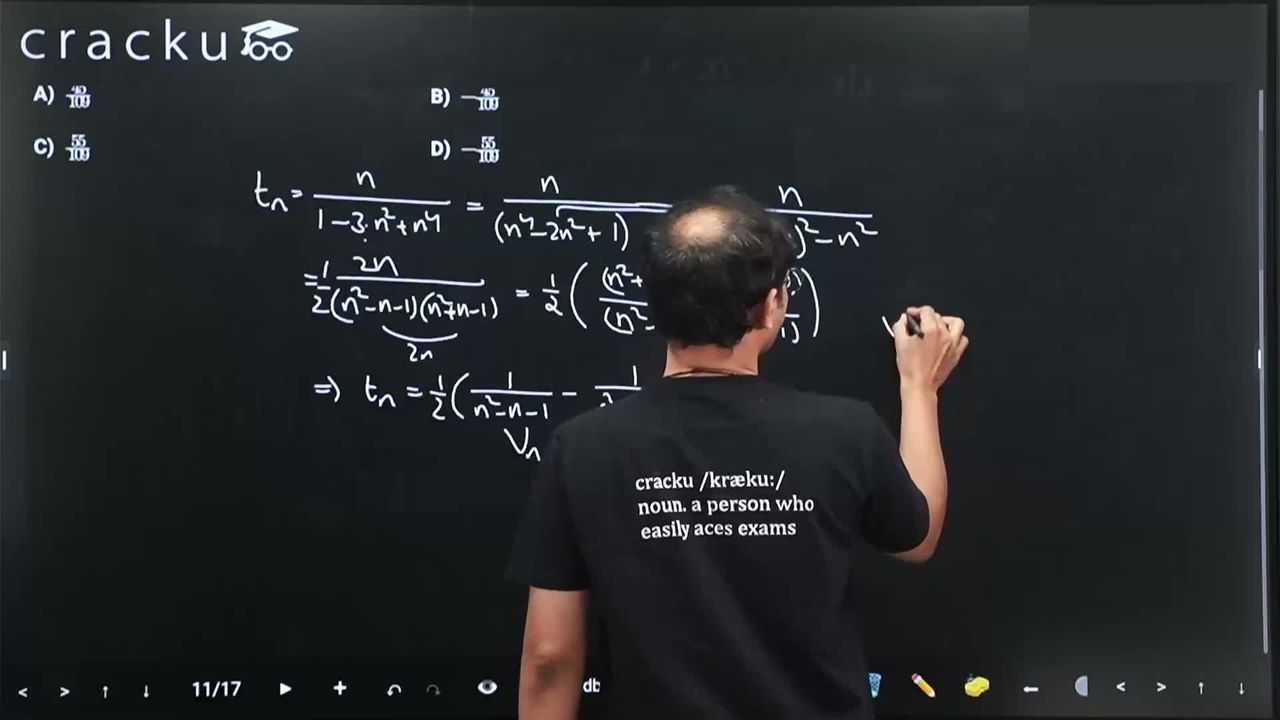 cracku
A) 45/109 B) -45/109
C) 55/109 D) -55/109
tₙ = n/(1-3·n²+n⁴) = n/((n⁴-2n²+1) n/( )²-n²
= 1/2 2n/((n²-n-1)(n²+n-1)) = 1/2 ( (n²+ /(n²- )
2n
⇒ tₙ = 1/2 ( 1/(n²-n-1) - 1/
Vₙ
cracku /kræku:/
noun. a person who
easily aces exams
11/17